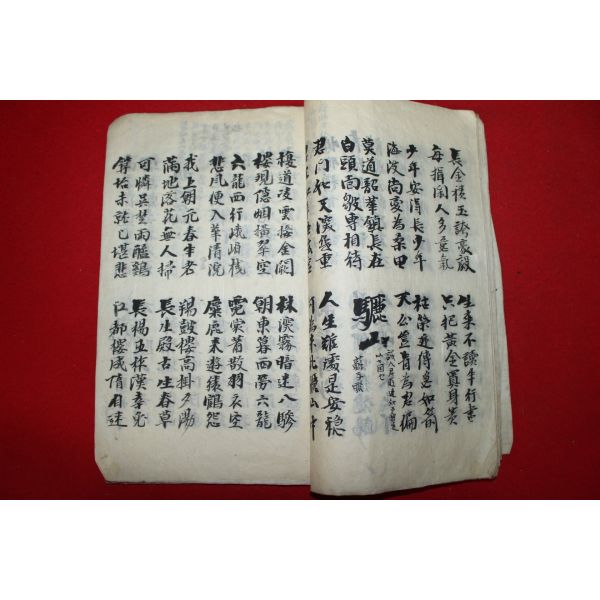 長金積玉誇豪毅
每揖閑人多意氣
生來不讀半行書
只把黃金買身貴
少年安得長少年
海波尚變為桑田
枯榮遞傳急如箭
天公豈肯為君偏
莫道韶華鎮長在
白頭面皺專相待
驪山
蘇子瞻
君門如天深幾重
人生難處是安穩
何為來此驪山中
複道凌雲接金闕
樓觀隱烟橫翠空
林深霧暗迷八駿
朝東暮西勞六龍
六龍西行峨嵋棧
悲風便入華清院
霓裳蕭散羽衣空
麋鹿來遊猿鶴怨
我上朝元春半老
滿地落花無人掃
羯鼓樓高掛夕陽
長生殿古生春草
可憐吳楚兩醯鷄
築坮未就已堪悲
長楊五柞漢幸免
江都樓成隋自迷